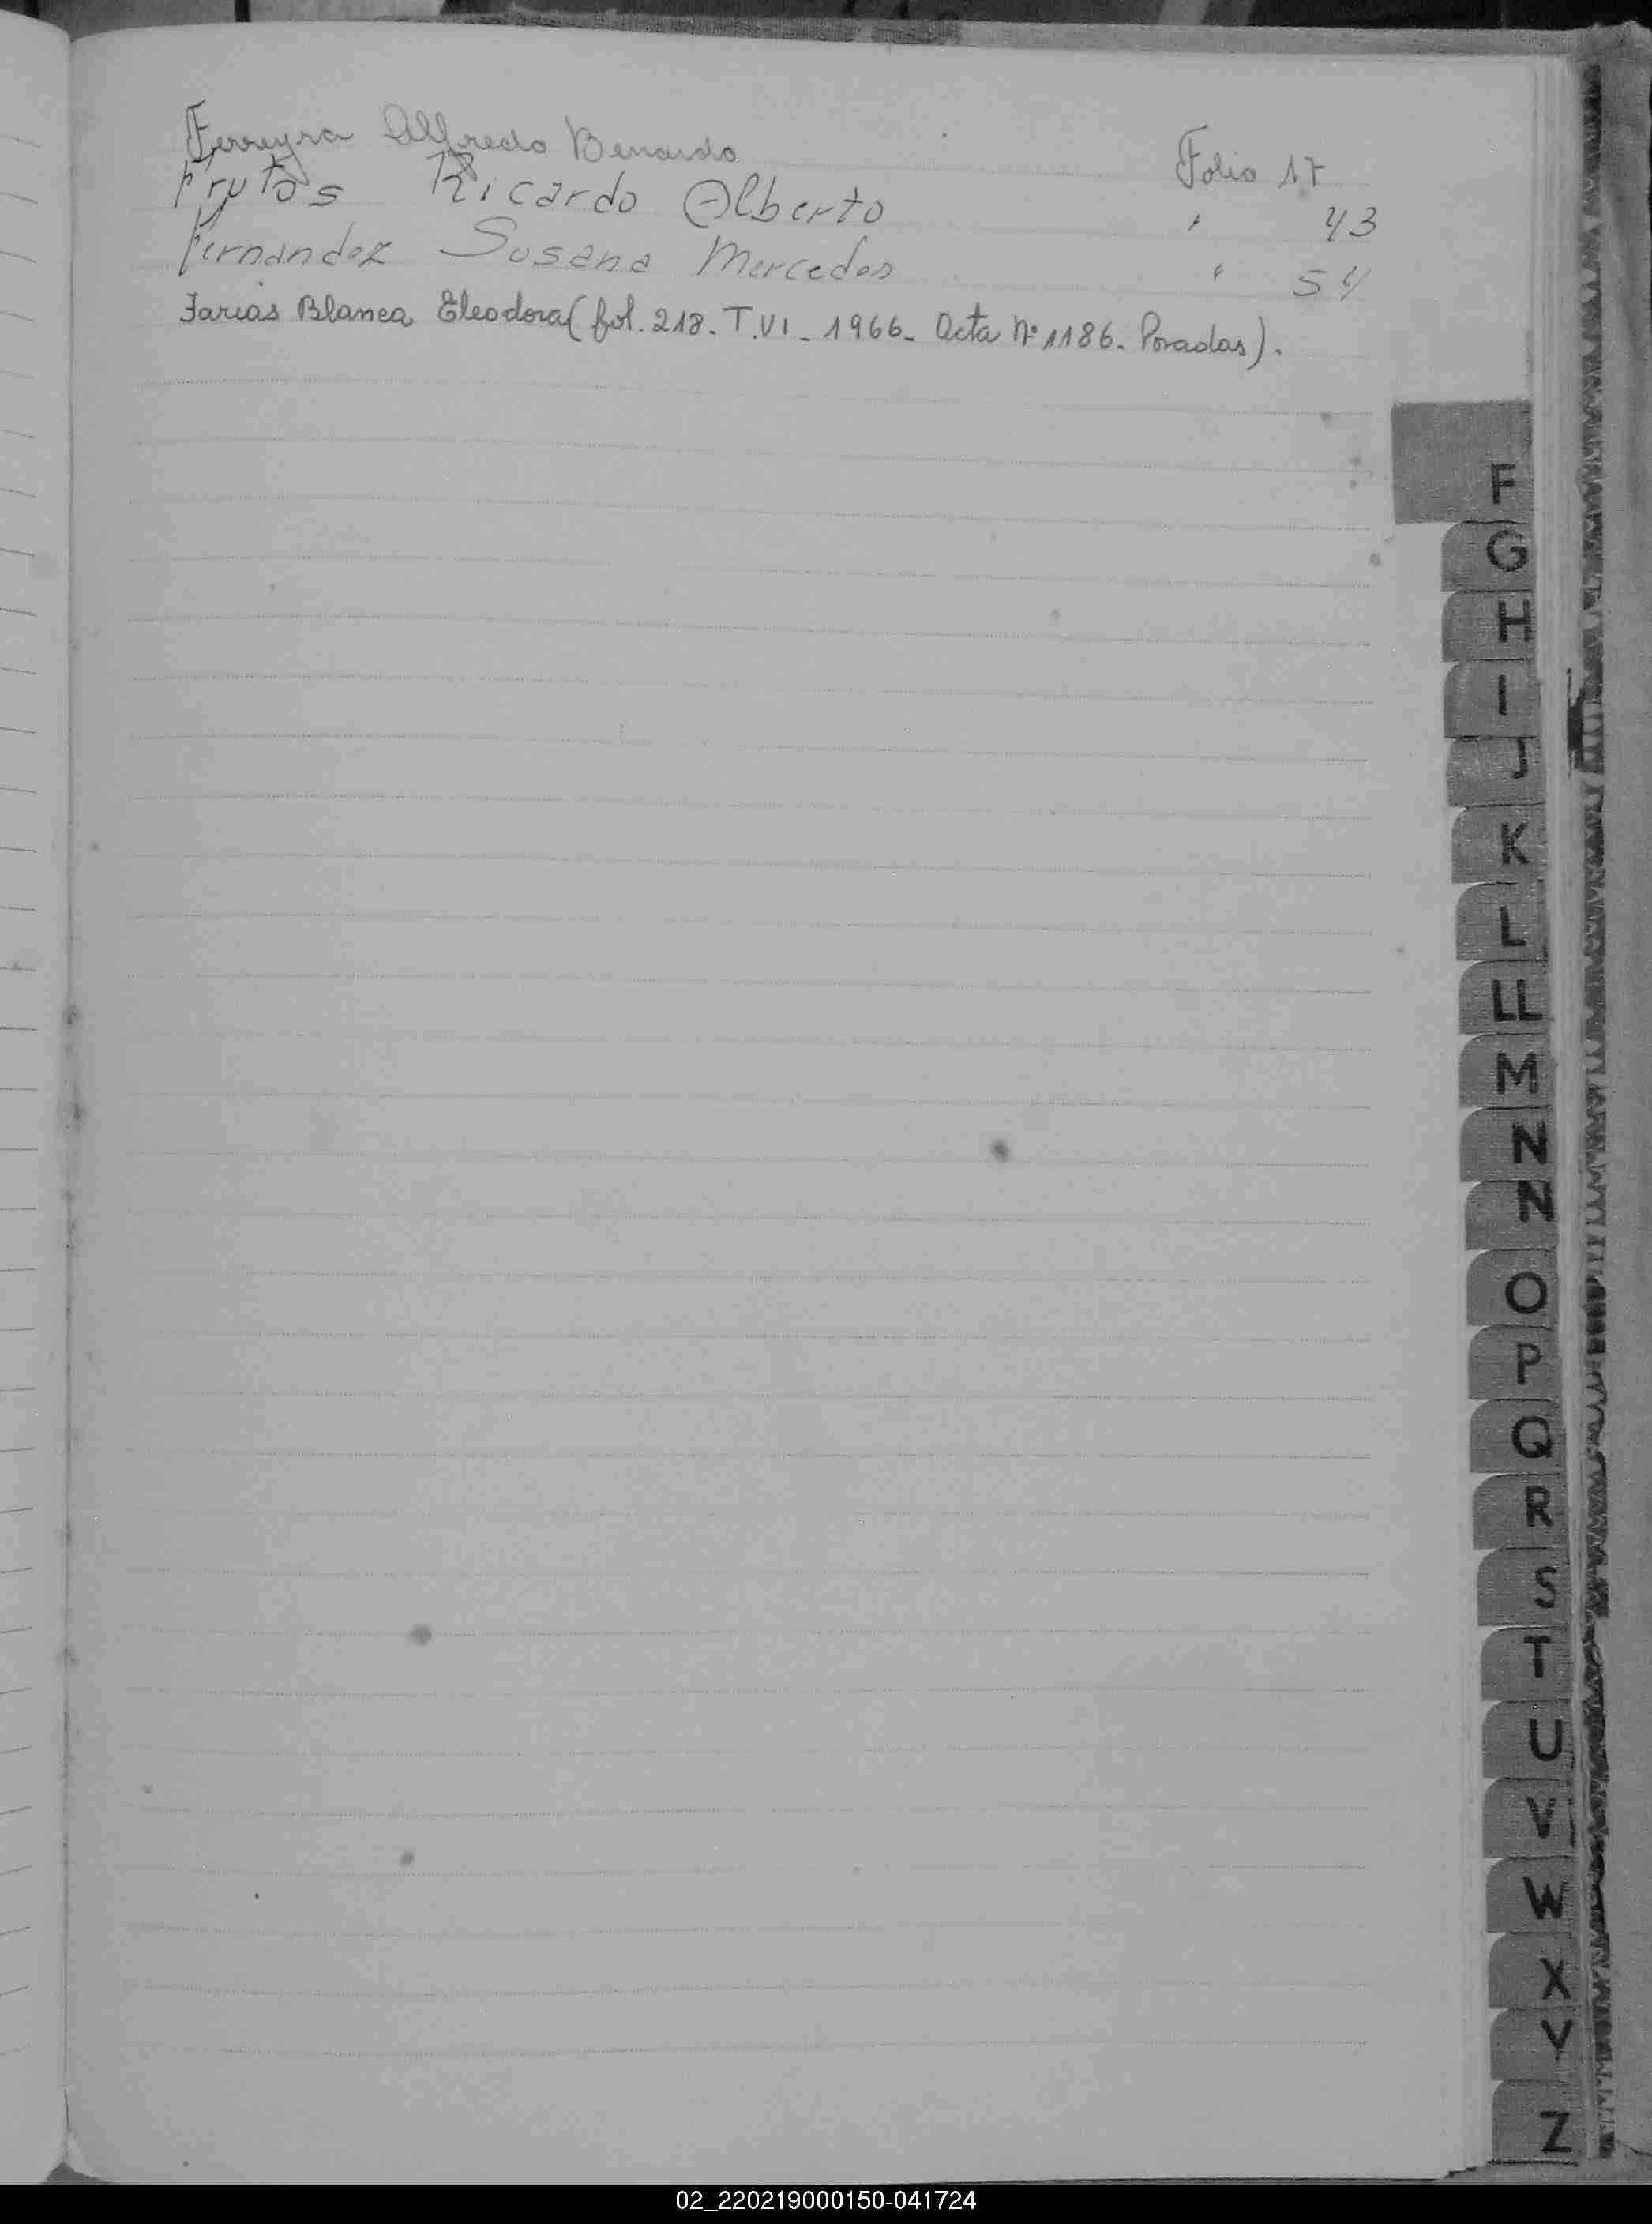 Ferreyra Alfredo Benardo Folio 17
Frutos Ricardo Alberto " 43
Fernandez Susana Mercedes " 54
Farias Blanca Eleodora (fol. 218. T.VI_ 1966_ Acta Nº 1186_ Posadas).
F
G
H
I
J
K
L
LL
M
N
N
O
P
Q
R
S
T
U
V
W
X
Y
Z
02_220219000150-041724